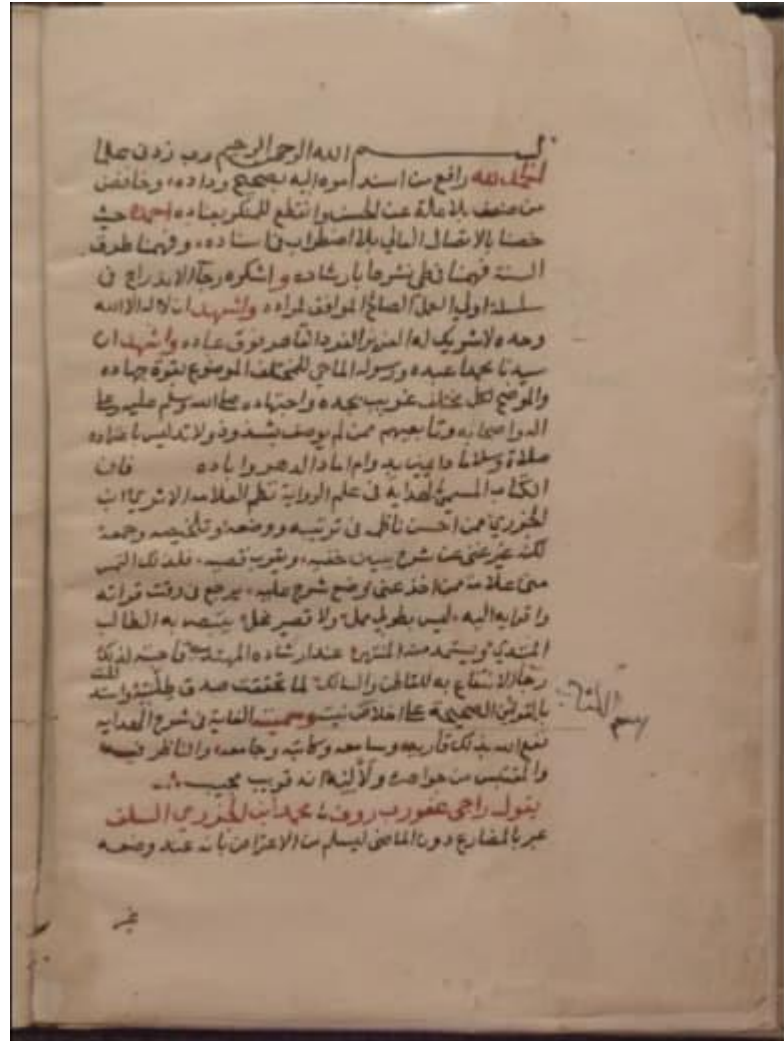 بسم الله الرحمن الرحيم رب زدني علما
الحمد لله رافع من اسند اموره اليه بصحيح وداده، وخافض
من ضعف بالامالة عن الحسن وانقطع للمنكر بعناده احمده حيث
خصنا بالاتصال العالي بلا اضطراب في اسناده، وفهمنا طرق
السنة فهمنا في نشرها بارشاده واشكره رجآ الاندراج في
سلسلة اولي العمل الصالح الموافق لمراده واشهد ان لا اله الا الله
وحده لا شريك له العزيز الفرد القاهر فوق عباده واشهد ان
سيدنا محمدا عبده ورسوله الماحي للمختلف الموضوع بقوة جهاده
والموضح لكل مختلف غريب بجده واجتهاده صلى الله وسلم عليه وعلى
اله واصحابه وتابعيهم ممن لم يوصف بشذوذ ولا تدليس باعتاده
صلاة وسلاما دايمين بدوام اماد الدهر واباده فان
الكتاب المسمى الهداية في علم الرواية نظم العلامة الاثري ابن
الجزري من احسن ناظم في ترتيبه ووضعه وتلخيصه وجمعه
لكنه غير غني عن شرح يبين خفيه، ويقرب قصيه، فلذلك التمس
مني علامة ممن اخذ عني وضع شرح عليه، يرجع في وقت قراته
واقرايه اليه، ليس بطويل ممل، ولا قصير مخل، يتبصر به الطالب
المبتدي ويستمد منه المنتهي عند ارشاده المهتدي فاجبته لذلك
رجآ الانتفاع به للقاطن والسالك لما تحققت صدق طلبته واستد
بالقراين الصحيحة على اخلاص نيته وسميته الغاية في شرح الهداية
اسم الكتاب
نفع الله بذلك قاريه وسامعه وكاتبه وجامعه، والناظر فيه
والمقتبس من جواهره ولآليه انه قريب مجيب
يقول راجي عفو رب روف محمد ابن الجزري السلفي
عبر بالمضارع دون الماضي ليسلم من الاعتراض بانه عند وضعه